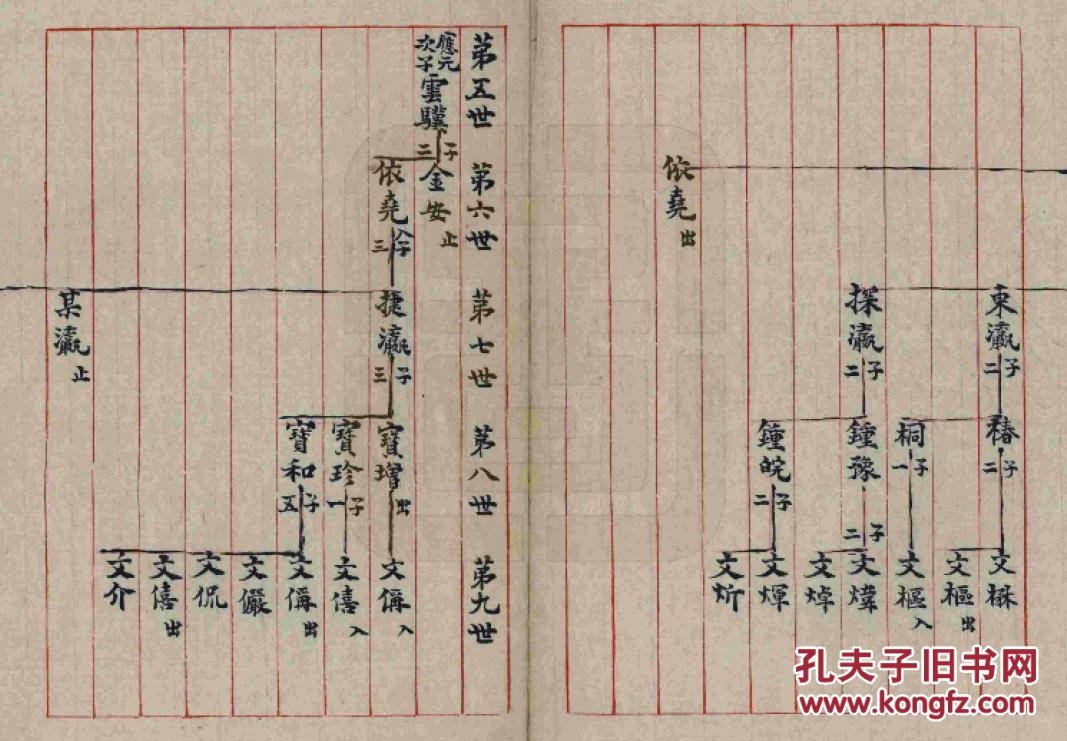 依堯出
東瀛
子二
探瀛
子二
椿
子二
桐
子一
鍾豫
子二
鍾皖
子二
文樞出
文樞入
文煒
文焯
文煇
文炘
第五世
第六世
第七世
第八世
第九世
應元次子
雲驥
子二
金安止
依堯
三
捷瀛
子三
某瀛止
寶增出
寶珍
子一
寶和
子五
文偁入
文僖入
文偁出
文儼
文侃
文僖出
文介
孔夫子旧书网
www.kongfz.com